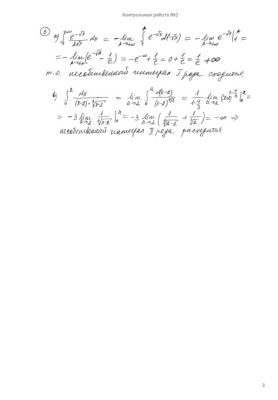 Контрольная работа №2
③ а) ∫₁^{+∞} e^{-√x}/√x dx = - lim_{A→+∞} ∫₁^A e^{-√x} d(-√x) = - lim_{A→+∞} e^{-√x} |₁^A =
= - lim_{A→+∞} (e^{-√A} - 1/e) = -e^{-∞} + 1/e = 0 + 1/e = 1/e ≠ ∞
т.о. несобственной интеграл I рода сходится.
б) ∫₀² dx/((x-2)·∛(x-2)) = lim_{a→2} ∫₀^a d(x-2)/(x-2)^{4/3} = 1/(1-4/3) lim_{a→2} (x-2)^{1-4/3} |₀^a =
= -3 lim_{a→2} 1/∛(x-2) |₀^a = -3 lim_{a→2} (1/∛(a-2) + 1/∛2) = -∞ ⇒
несобственной интеграл II рода расходится